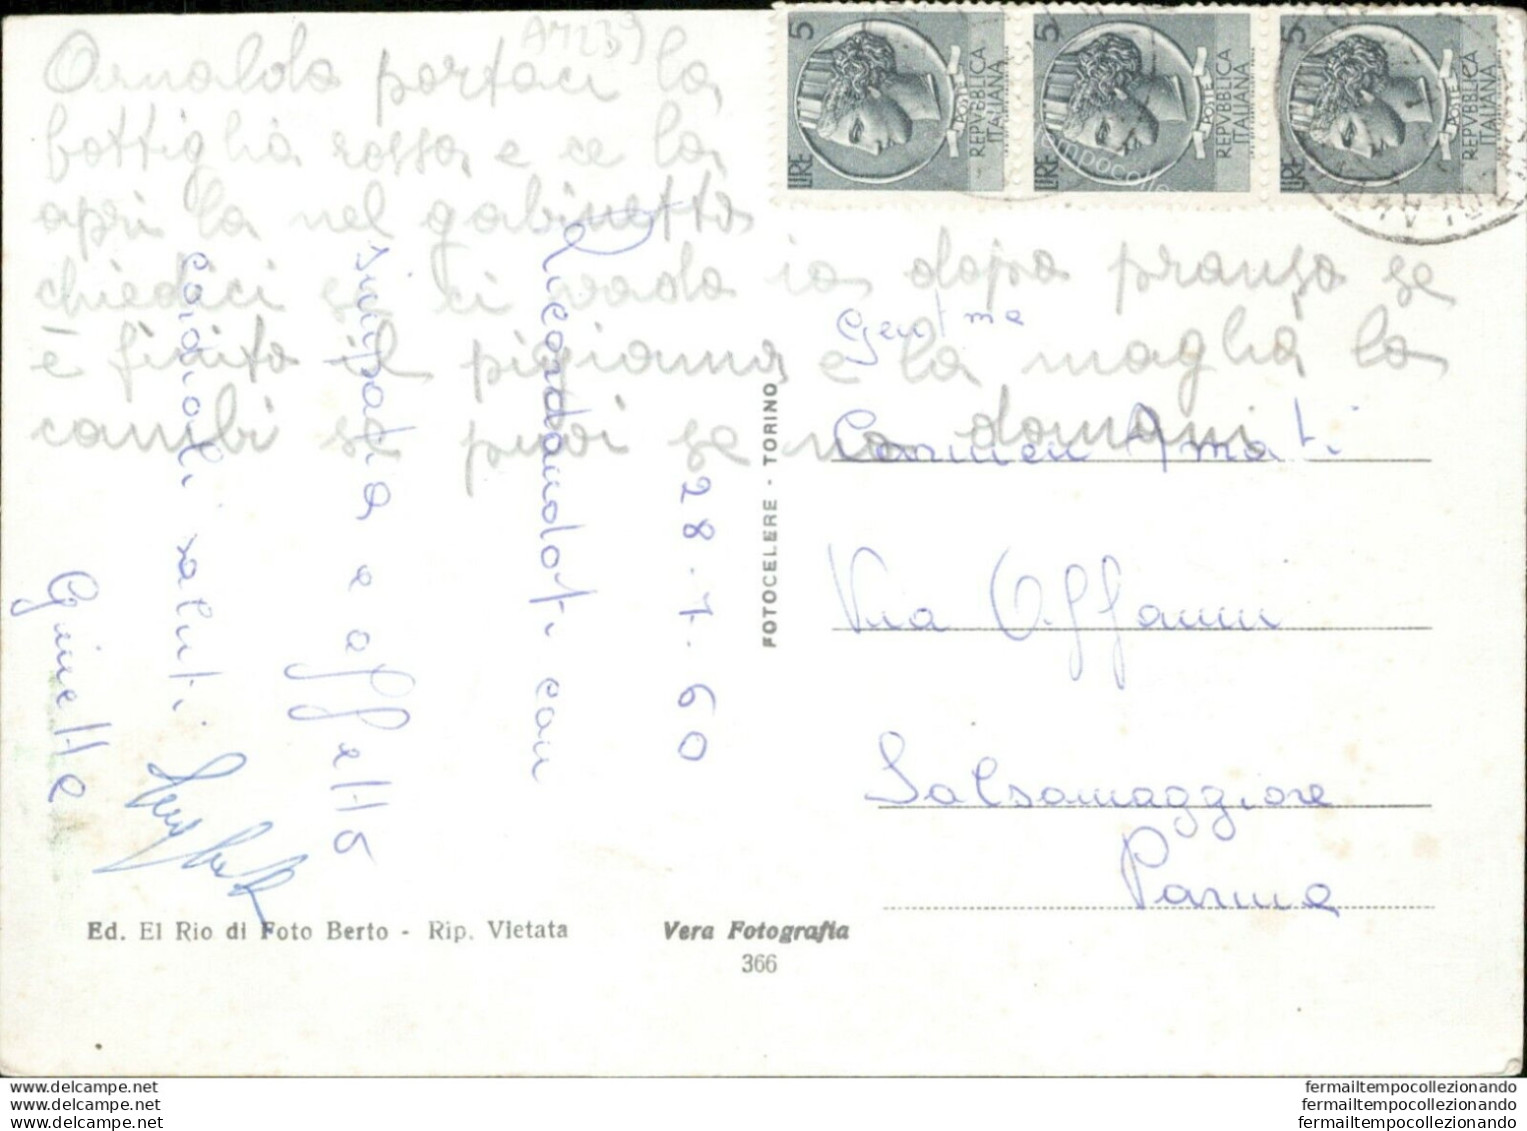 A7239
Arnaldo portaci la
bottiglia rossa e ce la
apri la nel gabinetto
chiedici se ci vado io dopo pranzo se
è finito il pigiama e la maglia la
cambi se puoi se no domani
28.7.60
Ricordandoti con
simpatia e affetto
cordiali saluti
Ginette
5
LIRE
POSTE
REPVBBLICA
ITALIANA
5
LIRE
POSTE
REPVBBLICA
ITALIANA
5
LIRE
POSTE
REPVBBLICA
ITALIANA
Gent.ma
Carmen Amati
Via Offanni
Salsomaggiore
Parma
FOTOCELERE - TORINO
Ed. El Rio di Foto Berto - Rip. Vietata
Vera Fotografia
366
www.delcampe.net
www.delcampe.net
www.delcampe.net
fermailtempocollezionando
fermailtempocollezionando
fermailtempocollezionando